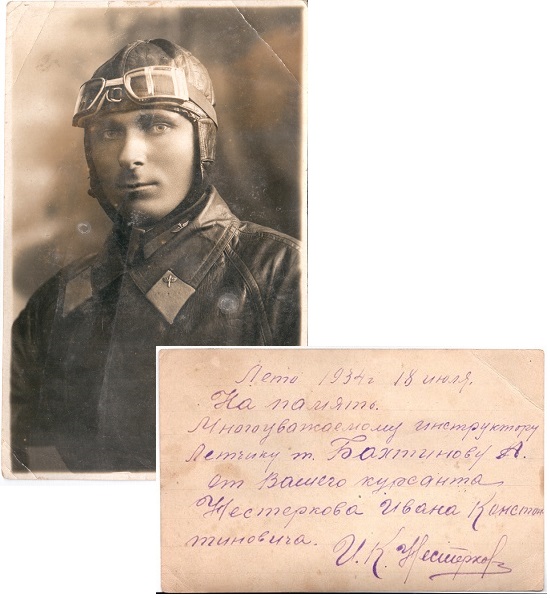 Лето 1934 г 18 июля.
На память.
Многоуважаемому инструктору
Летчику т. Бахтинову А.
от Вашего курсанта
Нестеркова Ивана Констан
тиновича. И.К. Нестерков